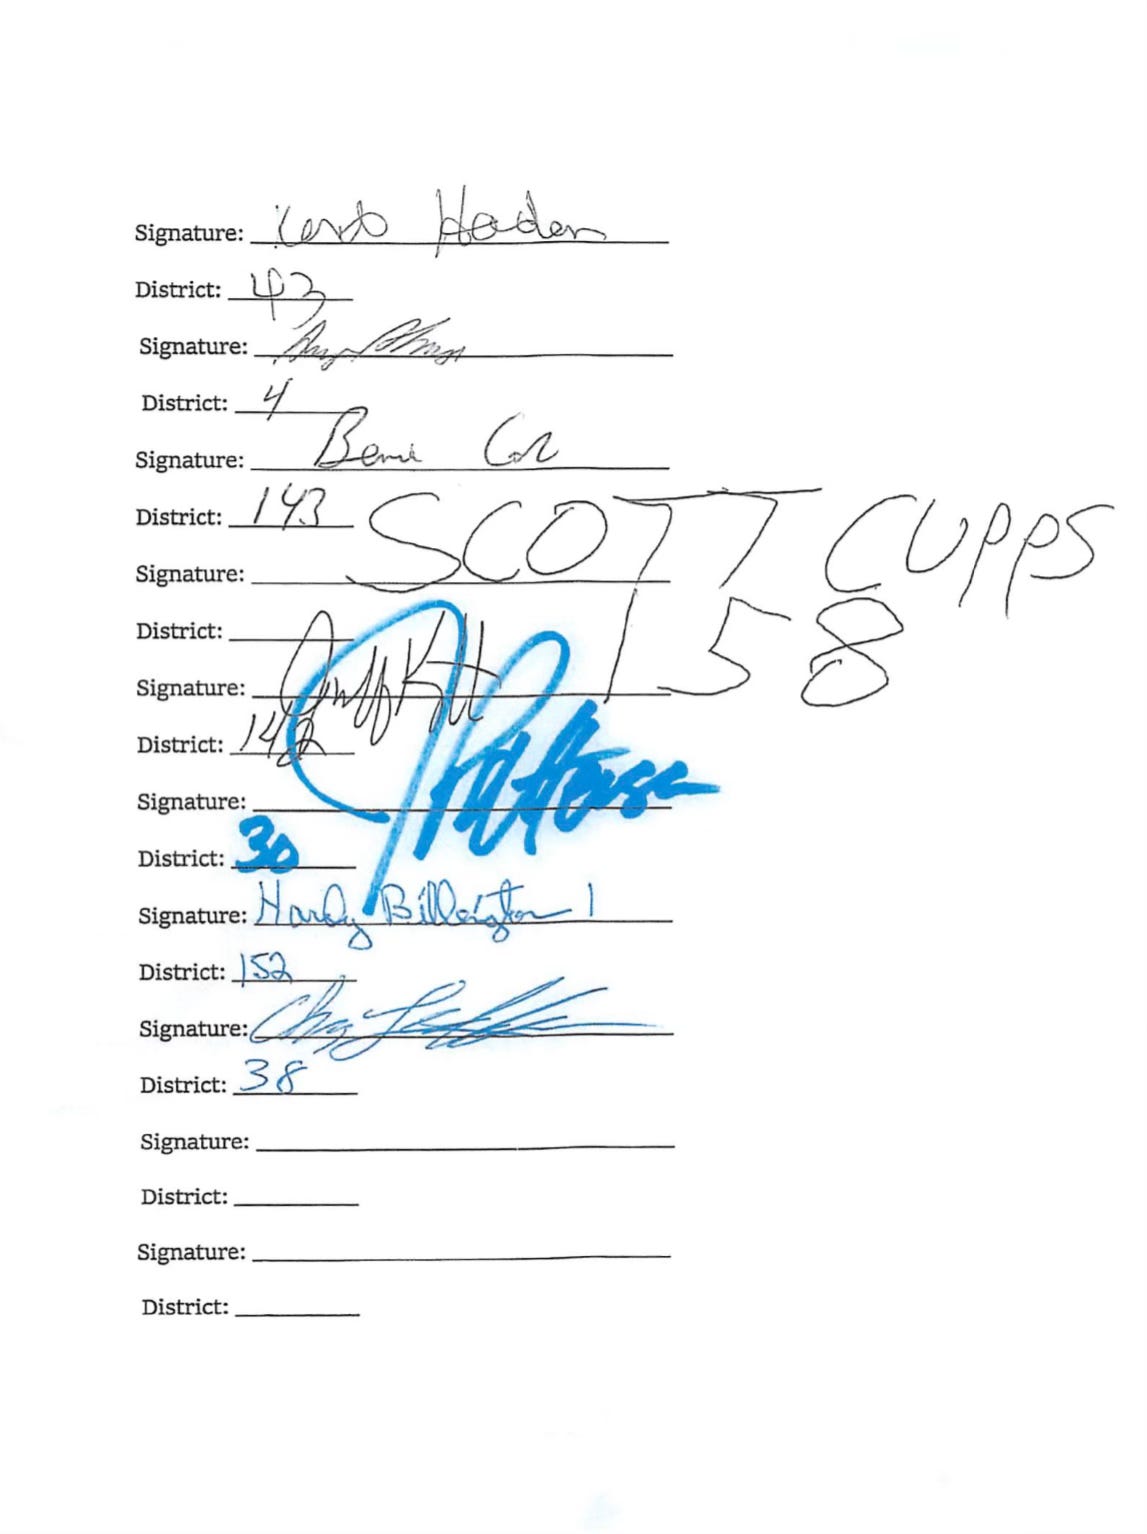 Signature: Kent Haden
District: 43
Signature:
District: 4
Signature: Bennie Cook
District: 143
Signature: SCOTT CUPPS
District: 158
Signature: Jeff Knight
District: 142
Signature:
District: 30
Signature: Hardy Billington
District: 152
Signature: Chris
District: 38
Signature:
District:
Signature:
District: